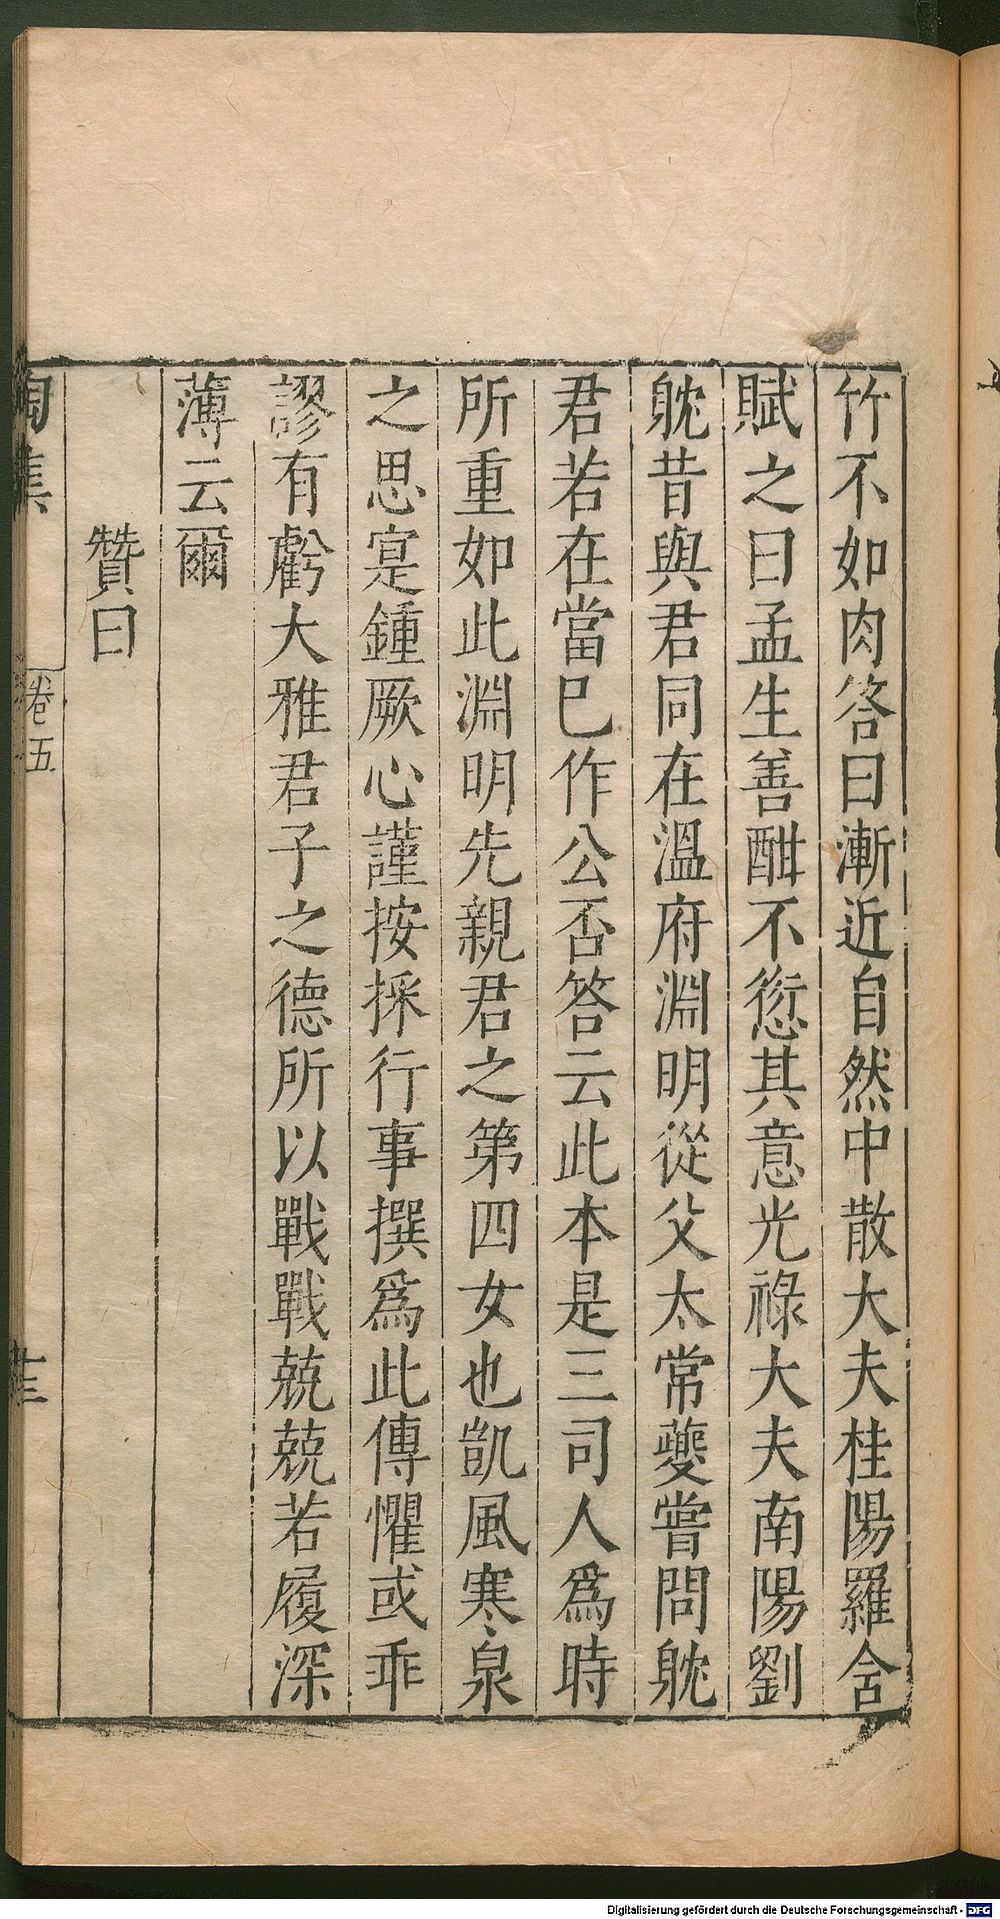 竹不如肉答曰漸近自然中散大夫桂陽羅含
賦之曰孟生善酣不愆其意光祿大夫南陽劉
躭昔與君同在溫府淵明從父太常夔嘗問躭
君若在當巳作公否答云此本是三司人爲時
所重如此淵明先親君之第四女也凱風寒泉
之思寔鍾厥心謹按採行事撰爲此傳懼或乖
謬有虧大雅君子之德所以戰戰兢兢若履深
薄云爾
贊曰
陶集
卷五
Digitalisierung gefördert durch die Deutsche Forschungsgemeinschaft - DFG